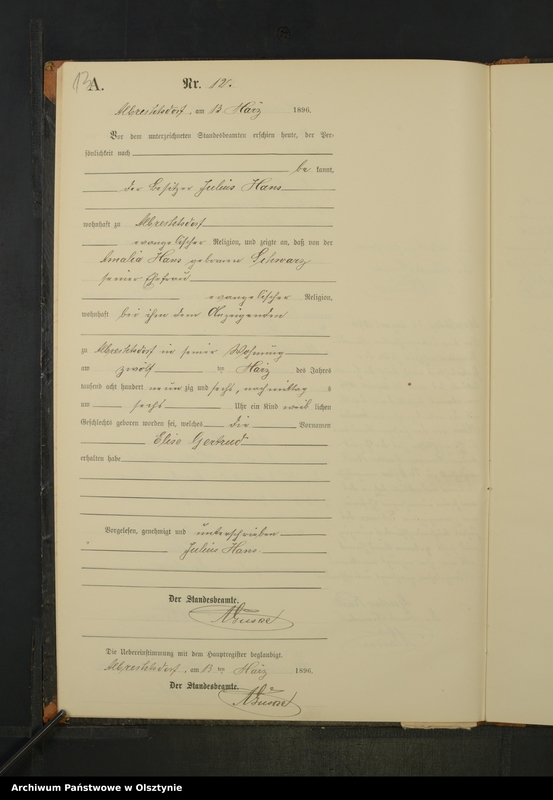 13
A.
Nr. 12.
Albrechtsdorf, am 13 März 1896.
Vor dem unterzeichneten Standesbeamten erschien heute, der Per-
sönlichkeit nach
be kannt,
der Besitzer Julius Hans
wohnhaft zu Albrechtsdorf
evangelischer Religion, und zeigte an, daß von der
Amalia Hans geborenen Schwarz
seiner Ehefrau
evangelischer Religion,
wohnhaft bei ihm dem Anzeigenden
zu Albrechtsdorf in seiner Wohnung
am zwölf ten März des Jahres
tausend acht hundert neun zig und sechs, nachmittag s
um sechs Uhr ein Kind weib lichen
Geschlechts geboren worden sei, welches die Vornamen
Elise Gertrud
erhalten habe
Vorgelesen, genehmigt und unterschrieben
Julius Hans
Der Standesbeamte.
Die Uebereinstimmung mit dem Hauptregister beglaubigt.
Albrechtsdorf, am 13 ten März 1896.
Der Standesbeamte.
Archiwum Państwowe w Olsztynie